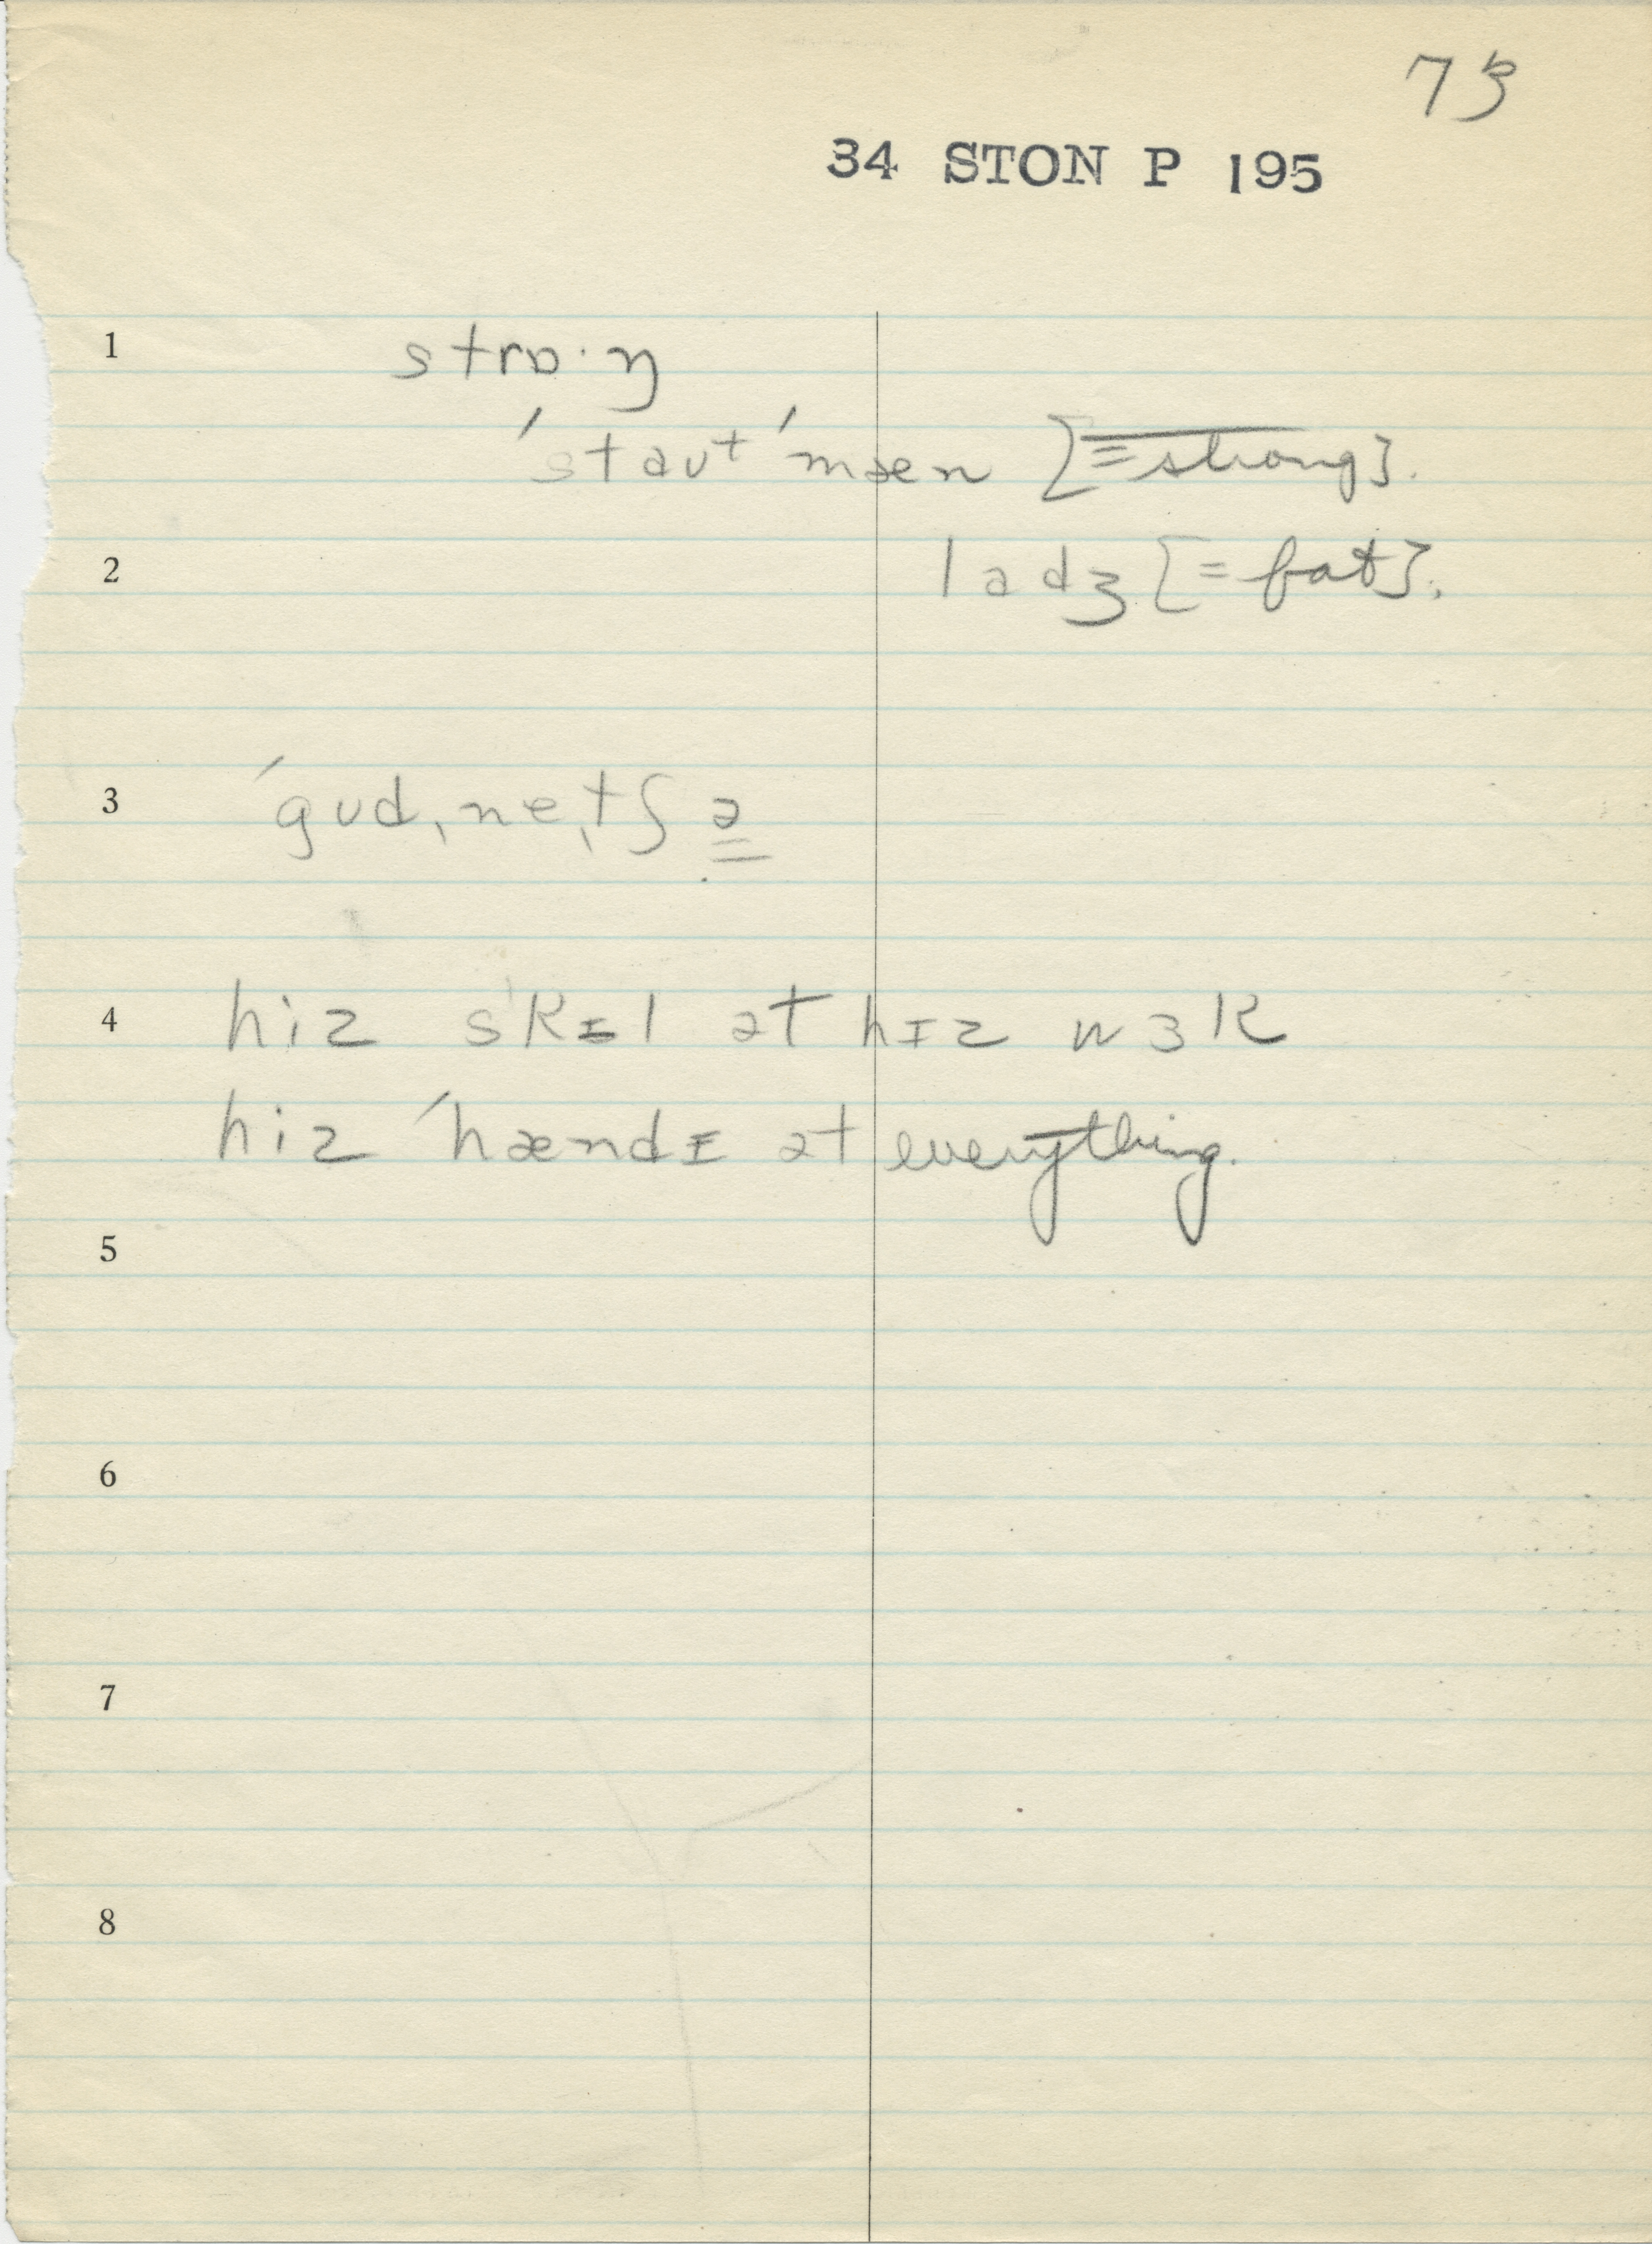 73
34 STON P 195
1 strɒ·ŋ
ˈstaʊt ˈmæn [= strong].
2 ladʒ [= fat].
3 ˈgʊdˌneˌtʃə
4 hiz skɪl ət hɪz wɜk
hiz ˈhændɪ ət everything.
5
6
7
8